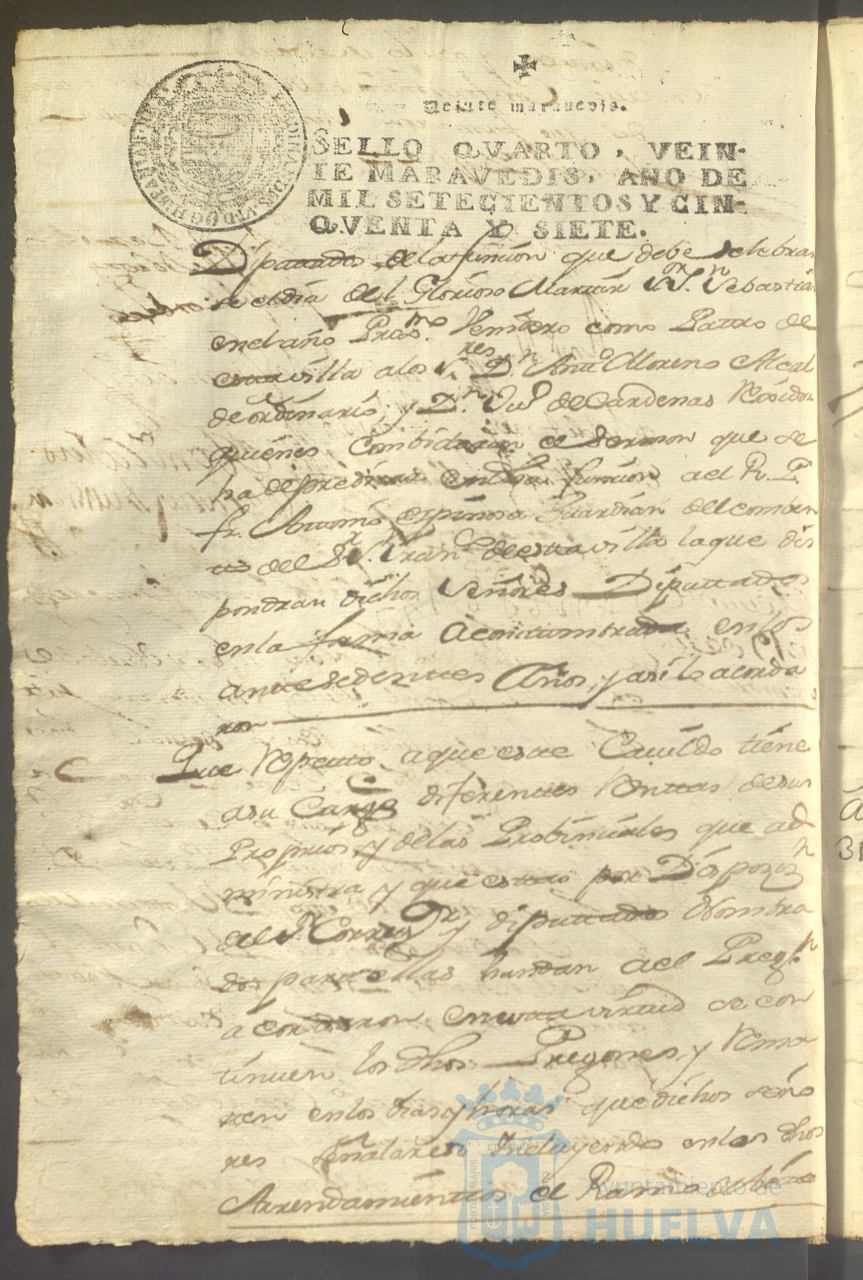 Veinte maravedis.
SELLO QVARTO, VEIN-
TE MARAVEDIS, AÑO DE
MIL SETECIENTOS Y CIN-
QVENTA Y SIETE.
Diputados de la funsion que debe selebrar
se el dia del Glorioso Martir Sr. Sn Sebastian
en el año Prosmo. Venidero como Patrono de
esta villa a los Sres. Dn Anto. Moreno Alcal
de ordinario, y Dn. de Cardenas Rexidor
quienes Combidaran el Sermon que se
ha de predicar en dha funsion al R. P.
fr. Antonio espinosa Guardian del comben
to del Sr. Sn. Franco. de esta villa la que dis
pondran dichos Señores Diputtados
en la forma Acostumbrada en los
antesedentes Años, y asi lo acorda
ron
Que Respecto a que este Cavildo tiene
a su Cargo diferentes Renttas de sus
Proprios y de las Probinsiales que ad
ministra y que estas por Dispozn
del Sr. Corregr. y diputtados Nombra
dos para ellas handan al Pregn
acordaron en esta virtud se con
tinuen los dhos Pregones, y Rema
ten en los dias y horas que dichos seño
res señalaren Incluyendo en los dhos
Arrendamientos el Ramo
Ayuntamiento de
HUELVA